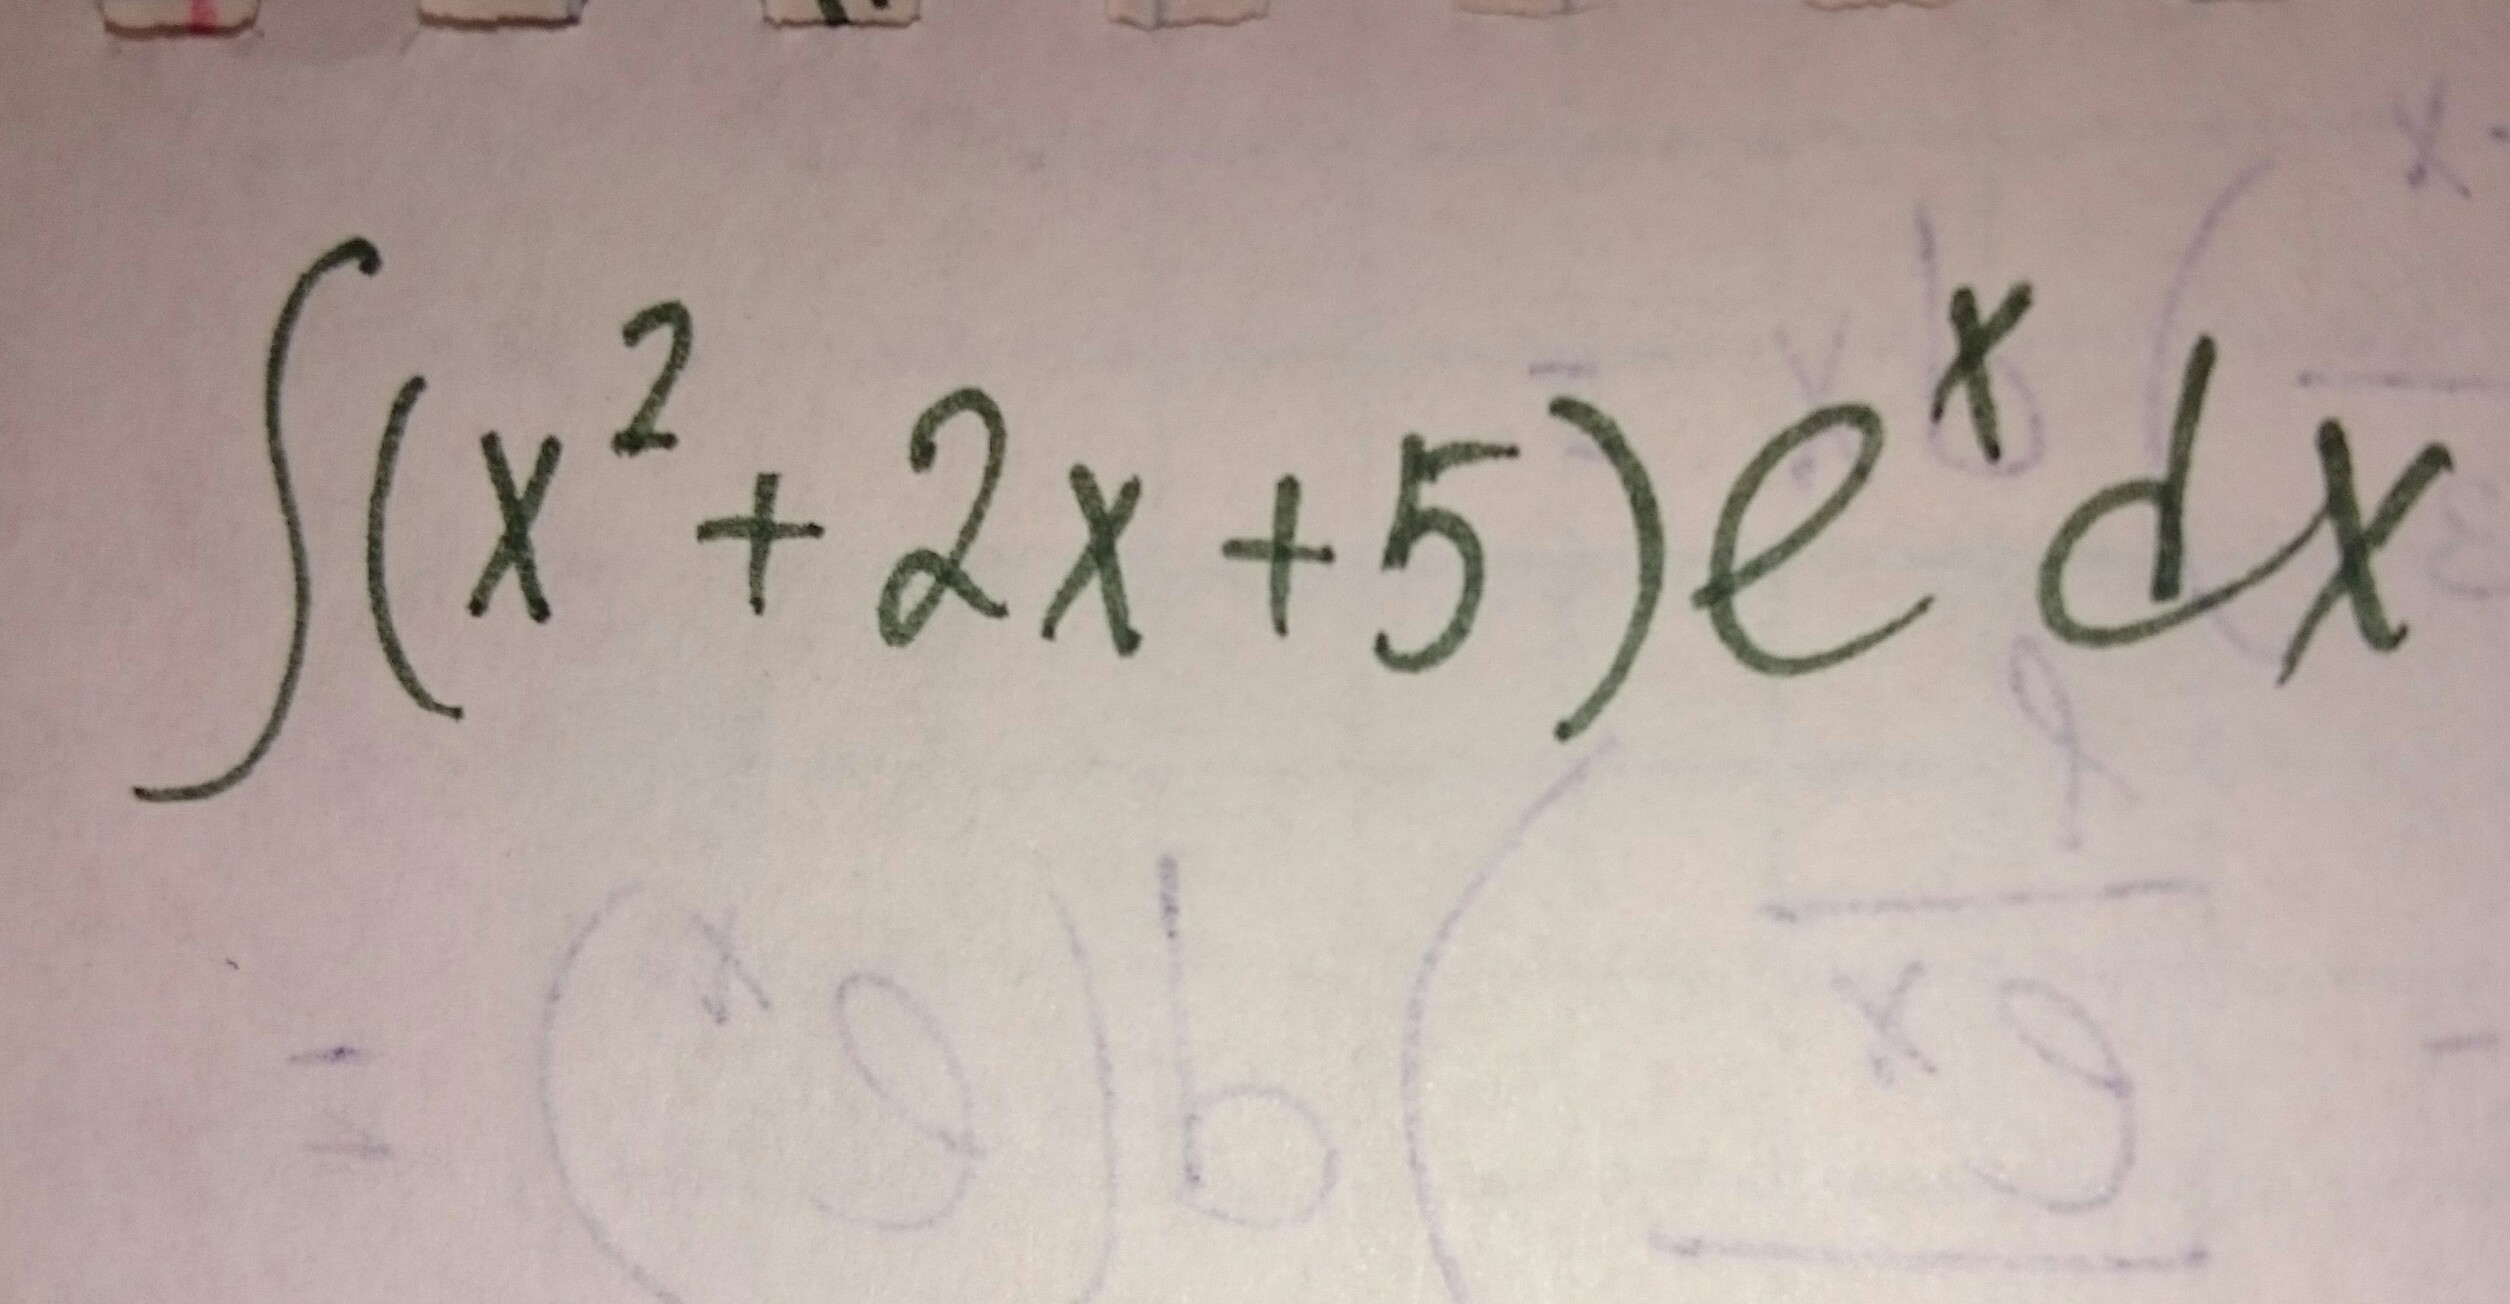 ∫(x²+2x+5)eˣdx